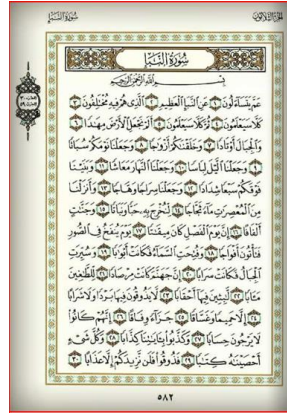 سُورَةُ النَّبَإِ
الجُزْءُ الثَّلَاثُونَ
سُورَةُ النَّبَإِ
بِسْمِ اللَّهِ الرَّحْمَٰنِ الرَّحِيمِ
عَمَّ يَتَسَاءَلُونَ ١ عَنِ النَّبَإِ الْعَظِيمِ ٢ الَّذِي هُمْ فِيهِ مُخْتَلِفُونَ ٣
كَلَّا سَيَعْلَمُونَ ٤ ثُمَّ كَلَّا سَيَعْلَمُونَ ٥ أَلَمْ نَجْعَلِ الْأَرْضَ مِهَٰدًا ٦
وَالْجِبَالَ أَوْتَادًا ٧ وَخَلَقْنَٰكُمْ أَزْوَٰجًا ٨ وَجَعَلْنَا نَوْمَكُمْ سُبَاتًا
٩ وَجَعَلْنَا الَّيْلَ لِبَاسًا ١٠ وَجَعَلْنَا النَّهَارَ مَعَاشًا ١١ وَبَنَيْنَا
فَوْقَكُمْ سَبْعًا شِدَادًا ١٢ وَجَعَلْنَا سِرَاجًا وَهَّاجًا ١٣ وَأَنزَلْنَا
مِنَ الْمُعْصِرَٰتِ مَاءً ثَجَّاجًا ١٤ لِّنُخْرِجَ بِهِ حَبًّا وَنَبَاتًا ١٥ وَجَنَّٰتٍ
أَلْفَافًا ١٦ إِنَّ يَوْمَ الْفَصْلِ كَانَ مِيقَٰتًا ١٧ يَوْمَ يُنفَخُ فِي الصُّورِ
فَتَأْتُونَ أَفْوَاجًا ١٨ وَفُتِحَتِ السَّمَاءُ فَكَانَتْ أَبْوَٰبًا ١٩ وَسُيِّرَتِ
الْجِبَالُ فَكَانَتْ سَرَابًا ٢٠ إِنَّ جَهَنَّمَ كَانَتْ مِرْصَادًا ٢١ لِّلطَّٰغِينَ
مَـَٔابًا ٢٢ لَّٰبِثِينَ فِيهَا أَحْقَابًا ٢٣ لَّا يَذُوقُونَ فِيهَا بَرْدًا وَلَا شَرَابًا
٢٤ إِلَّا حَمِيمًا وَغَسَّاقًا ٢٥ جَزَاءً وِفَاقًا ٢٦ إِنَّهُمْ كَانُوا
لَا يَرْجُونَ حِسَابًا ٢٧ وَكَذَّبُوا بِـَٔايَٰتِنَا كِذَّابًا ٢٨ وَكُلَّ شَيْءٍ
أَحْصَيْنَٰهُ كِتَٰبًا ٢٩ فَذُوقُوا فَلَن نَّزِيدَكُمْ إِلَّا عَذَابًا ٣٠
٥٨٢